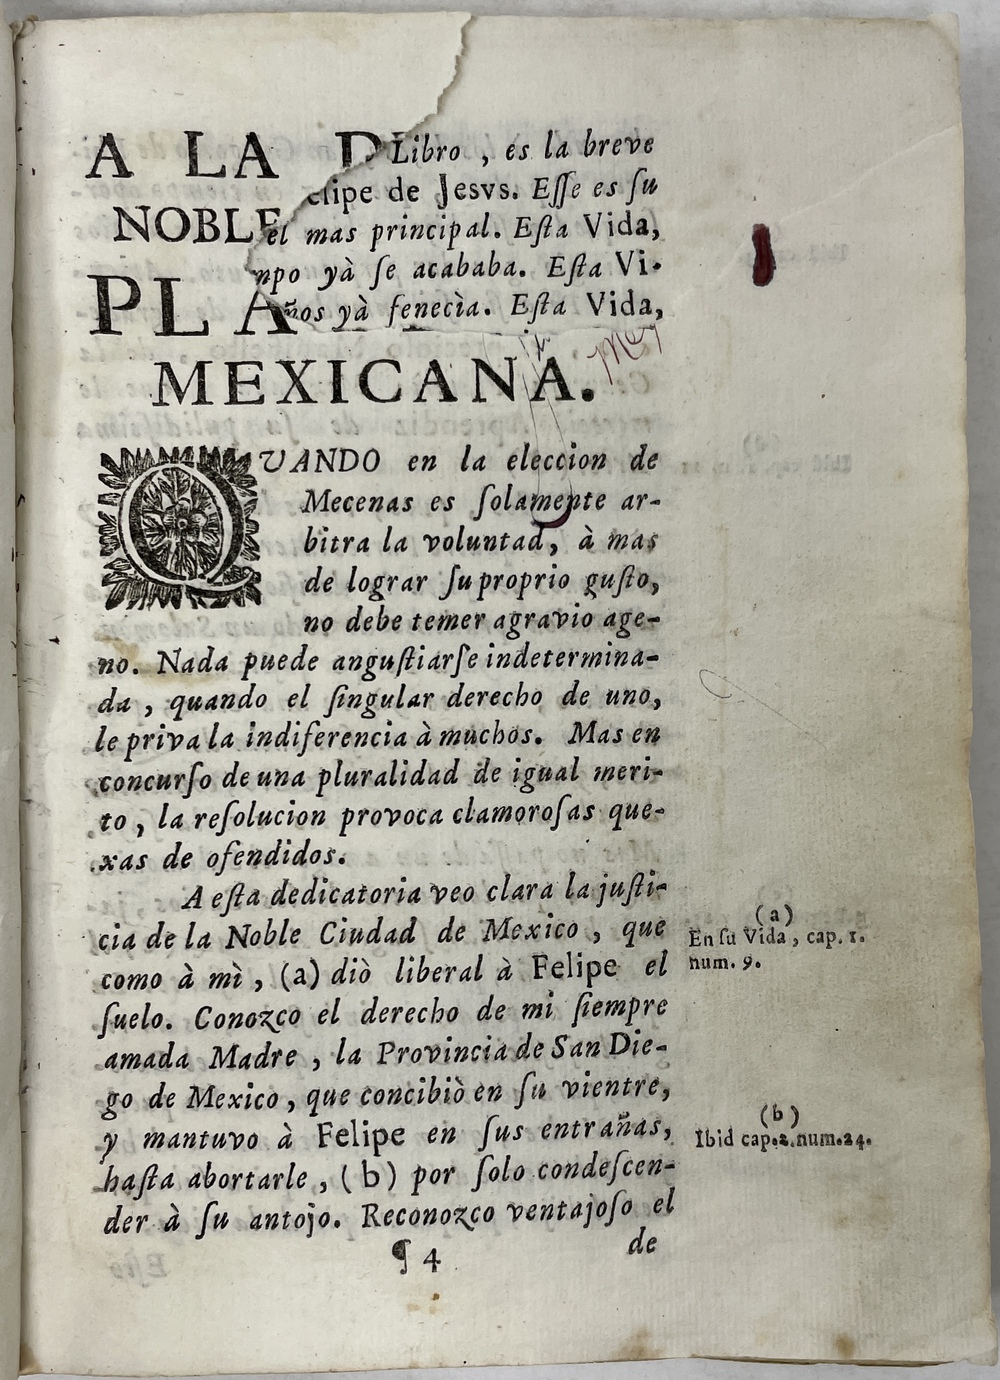 A LA D Libro , es la breve
elipe de Jesvs. Eſſe es ſu
NOBLE el mas principal. Eſta Vida,
mpo yà ſe acababa. Eſta Vi-
PLA ños yà fenecìa. Eſta Vida,
MEXICANA.
QVANDO en la eleccion de
Mecenas es ſolamente ar-
bitra la voluntad, à mas
de lograr ſu proprio guſto,
no debe temer agravio age-
no. Nada puede anguſtiarſe indetermina-
da , quando el ſingular derecho de uno,
le priva la indiferencia à muchos. Mas en
concurſo de una pluralidad de igual meri-
to , la reſolucion provoca clamoroſas que-
xas de ofendidos.
A eſta dedicatoria veo clara la juſti-
cia de la Noble Ciudad de Mexico , que
como à mì , (a) diò liberal à Felipe el
ſuelo. Conozco el derecho de mi ſiempre
amada Madre , la Provincia de San Die-
go de Mexico , que concibiò en ſu vientre,
y mantuvo à Felipe en ſus entrañas,
haſta abortarle , (b) por ſolo condeſcen-
der à ſu antojo. Reconozco ventajoſo el
¶ 4 de
(a)
En ſu Vida , cap. 1.
num. 9.
(b)
Ibid cap.2.num.24.